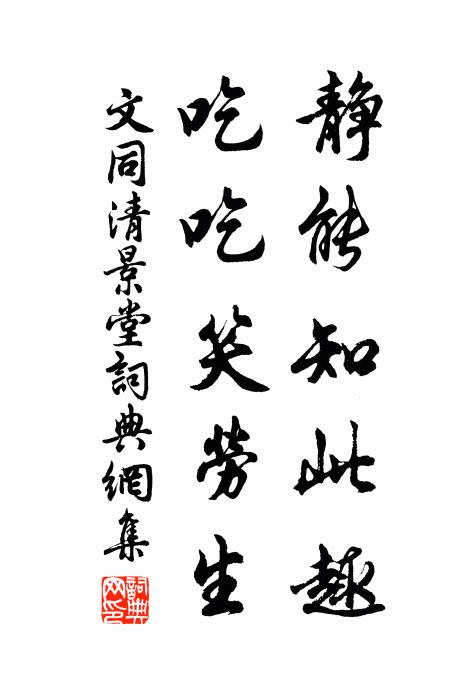 静能知此趣
吃吃笑勞生
文同清景堂詞典網集
詞典網印